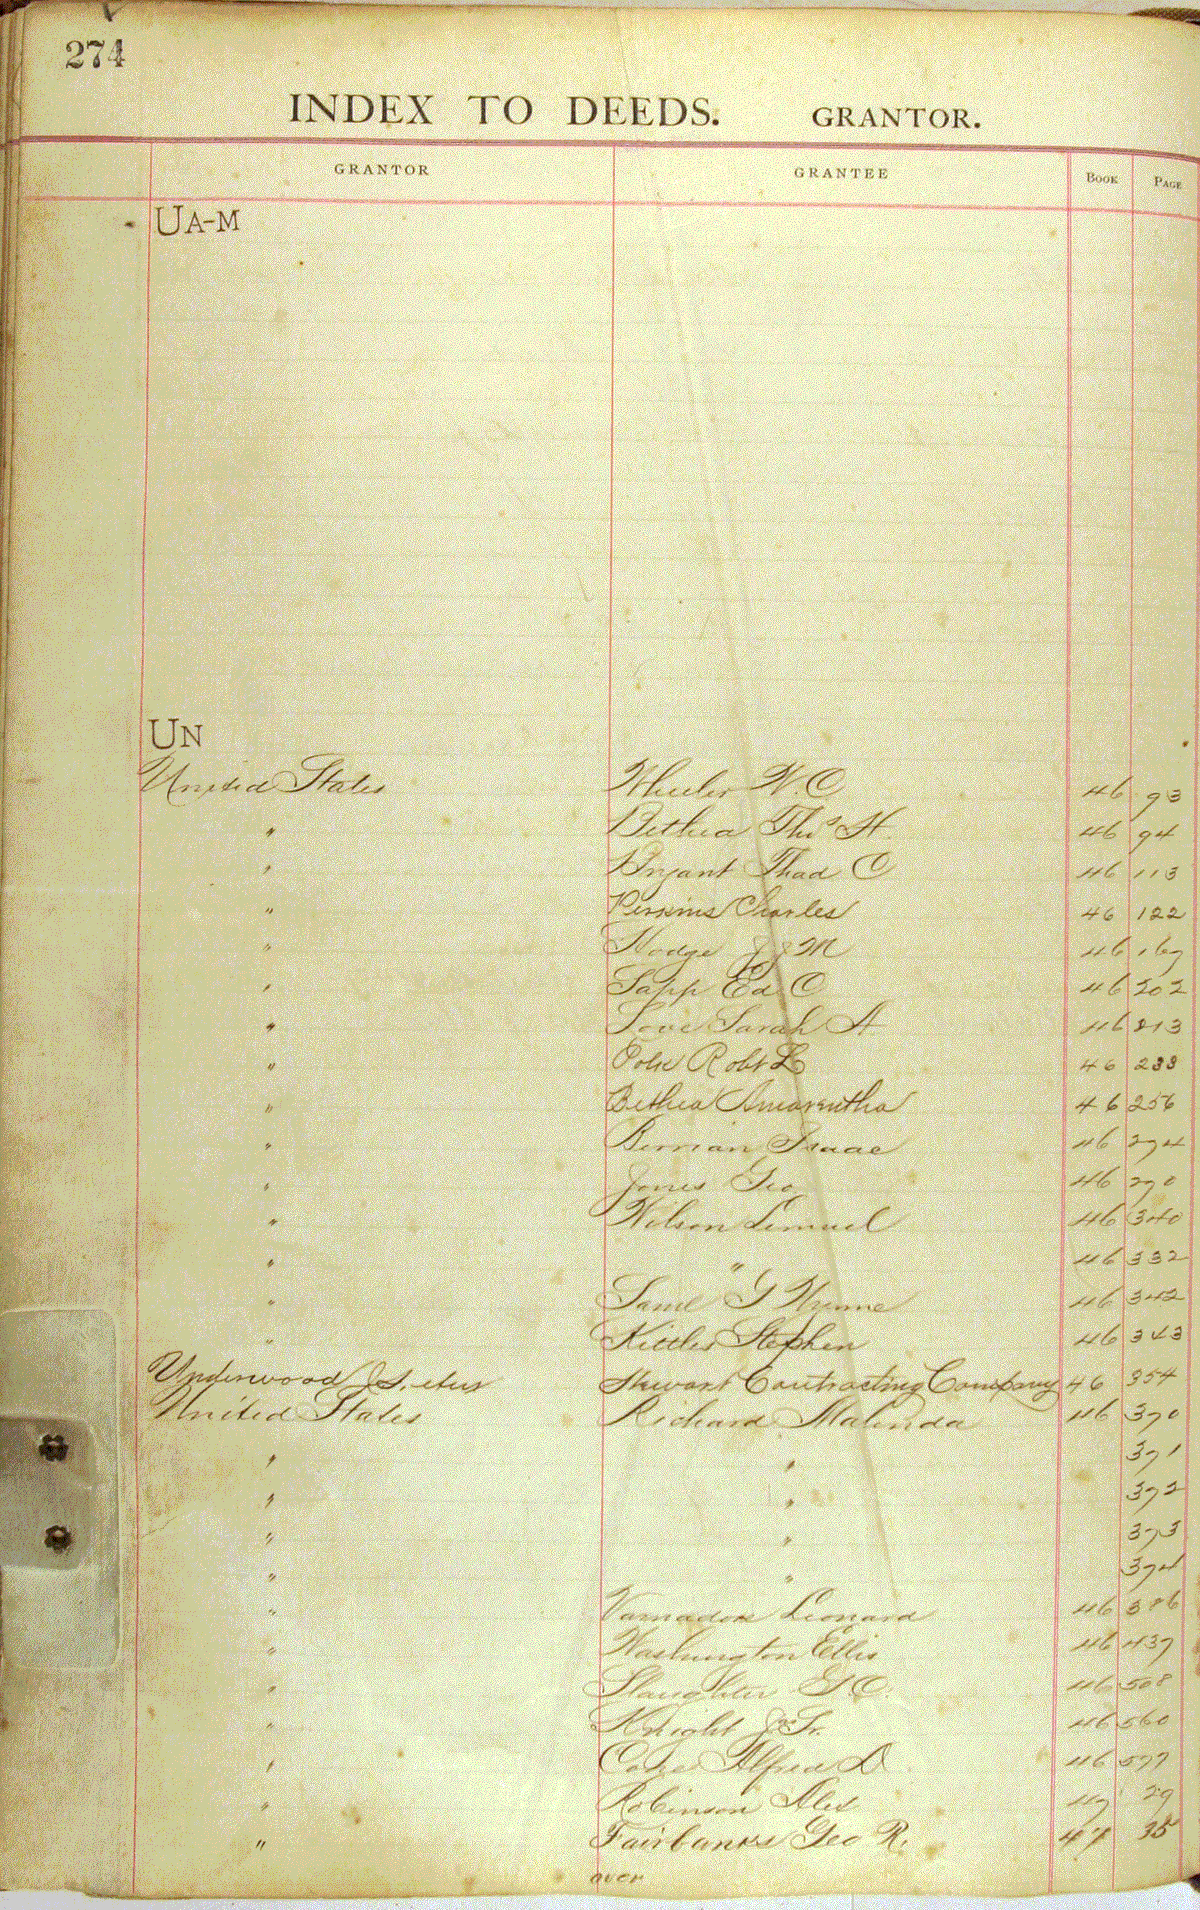 274
INDEX TO DEEDS. GRANTOR.
GRANTOR GRANTEE BOOK PAGE
UA-M
UN
United States Wheeler W. C 46 93
" Bethea Thos H. 46 94
" Bryant Thad C 46 113
" Perkins Charles 46 122
" Hodge J J M 46 167
" Sapp Ed C 46 202
" Love Sarah A 46 213
" Polk Robt L 46 233
" Bethea Amarintha 46 256
" Berrian Isaac 46 274
" Jones Geo 46 290
" Wilson Lemuel 46 340
" " 46 332
" Saml G Wynne 46 342
" Kittles Stephen 46 343
Underwood Stewart Contracting Company 46 354
United States Richard Malinda 46 370
" " 371
" " 372
" " 373
" " 374
" Varnadoe Leonard 46 386
" Washington Ellis 46 437
" Slaughter G C. 46 508
" Knight Jno Sr. 46 560
" Alfred D 46 577
" Robinson Alex 47 29
" Fairbanks Geo R. 47 35
over